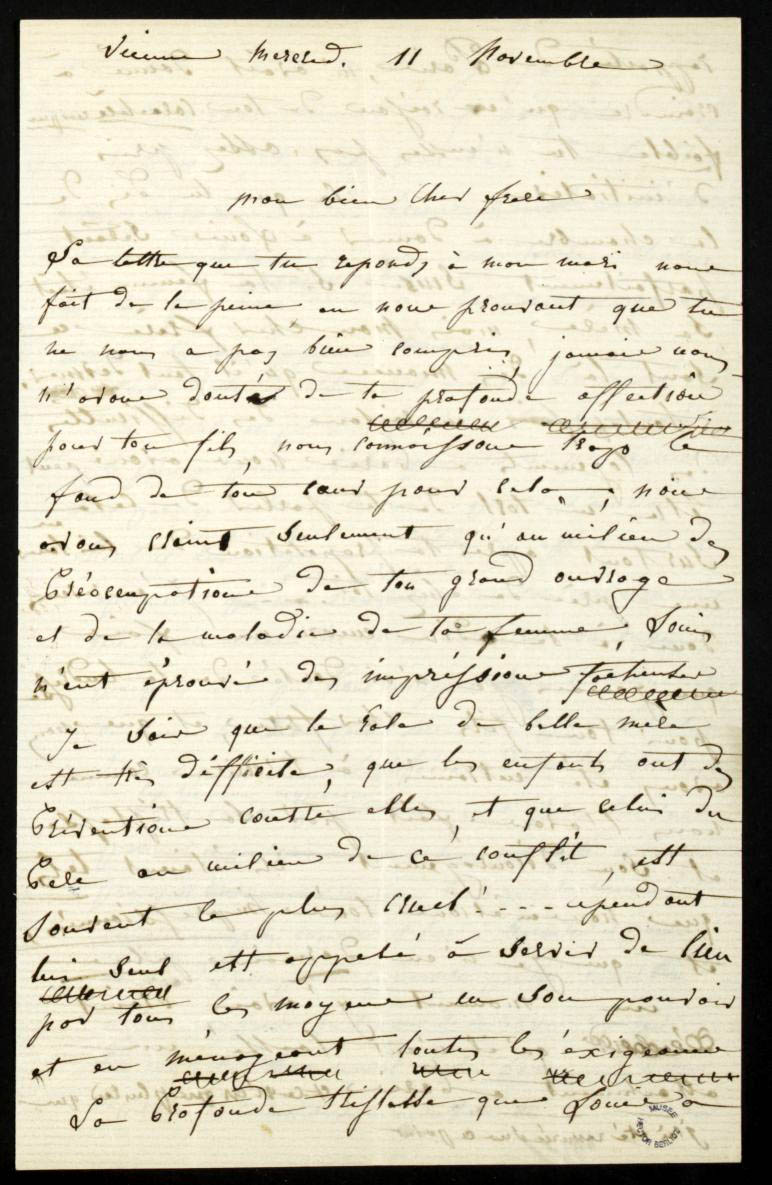 Vienne Mercred. 11 Novembre
mon bien cher frere
La lettre que tu reponds à mon mari nous
fait de la peine en nous prouvant que tu
ne nous a pas bien compris, jamais nous
n'avons doutés de ta profonde affection
pour ton fils, nous connaissons trop le
fond de ton cœur pour cela, nous
avons craint seulement qu'au milieu des
Préoccupations de ton grand ouvrage
et de la maladie de ta femme Louis
n'eut éprouvé des impréssions facheuses
Je sais que le Role de belle mère
est très difficile, que les enfants ont des
Préventions contre elles, et que celui du
Pere au milieu de ce conflit, est
souvent le plus cruel! - - - cependant
lui seul est appelé à servir de lien
par tous les moyens en son pouvoir
et en ménageant toutes les éxigeances
La Profonde tristesse que Louis a
MUSEE HECTOR BERLIOZ